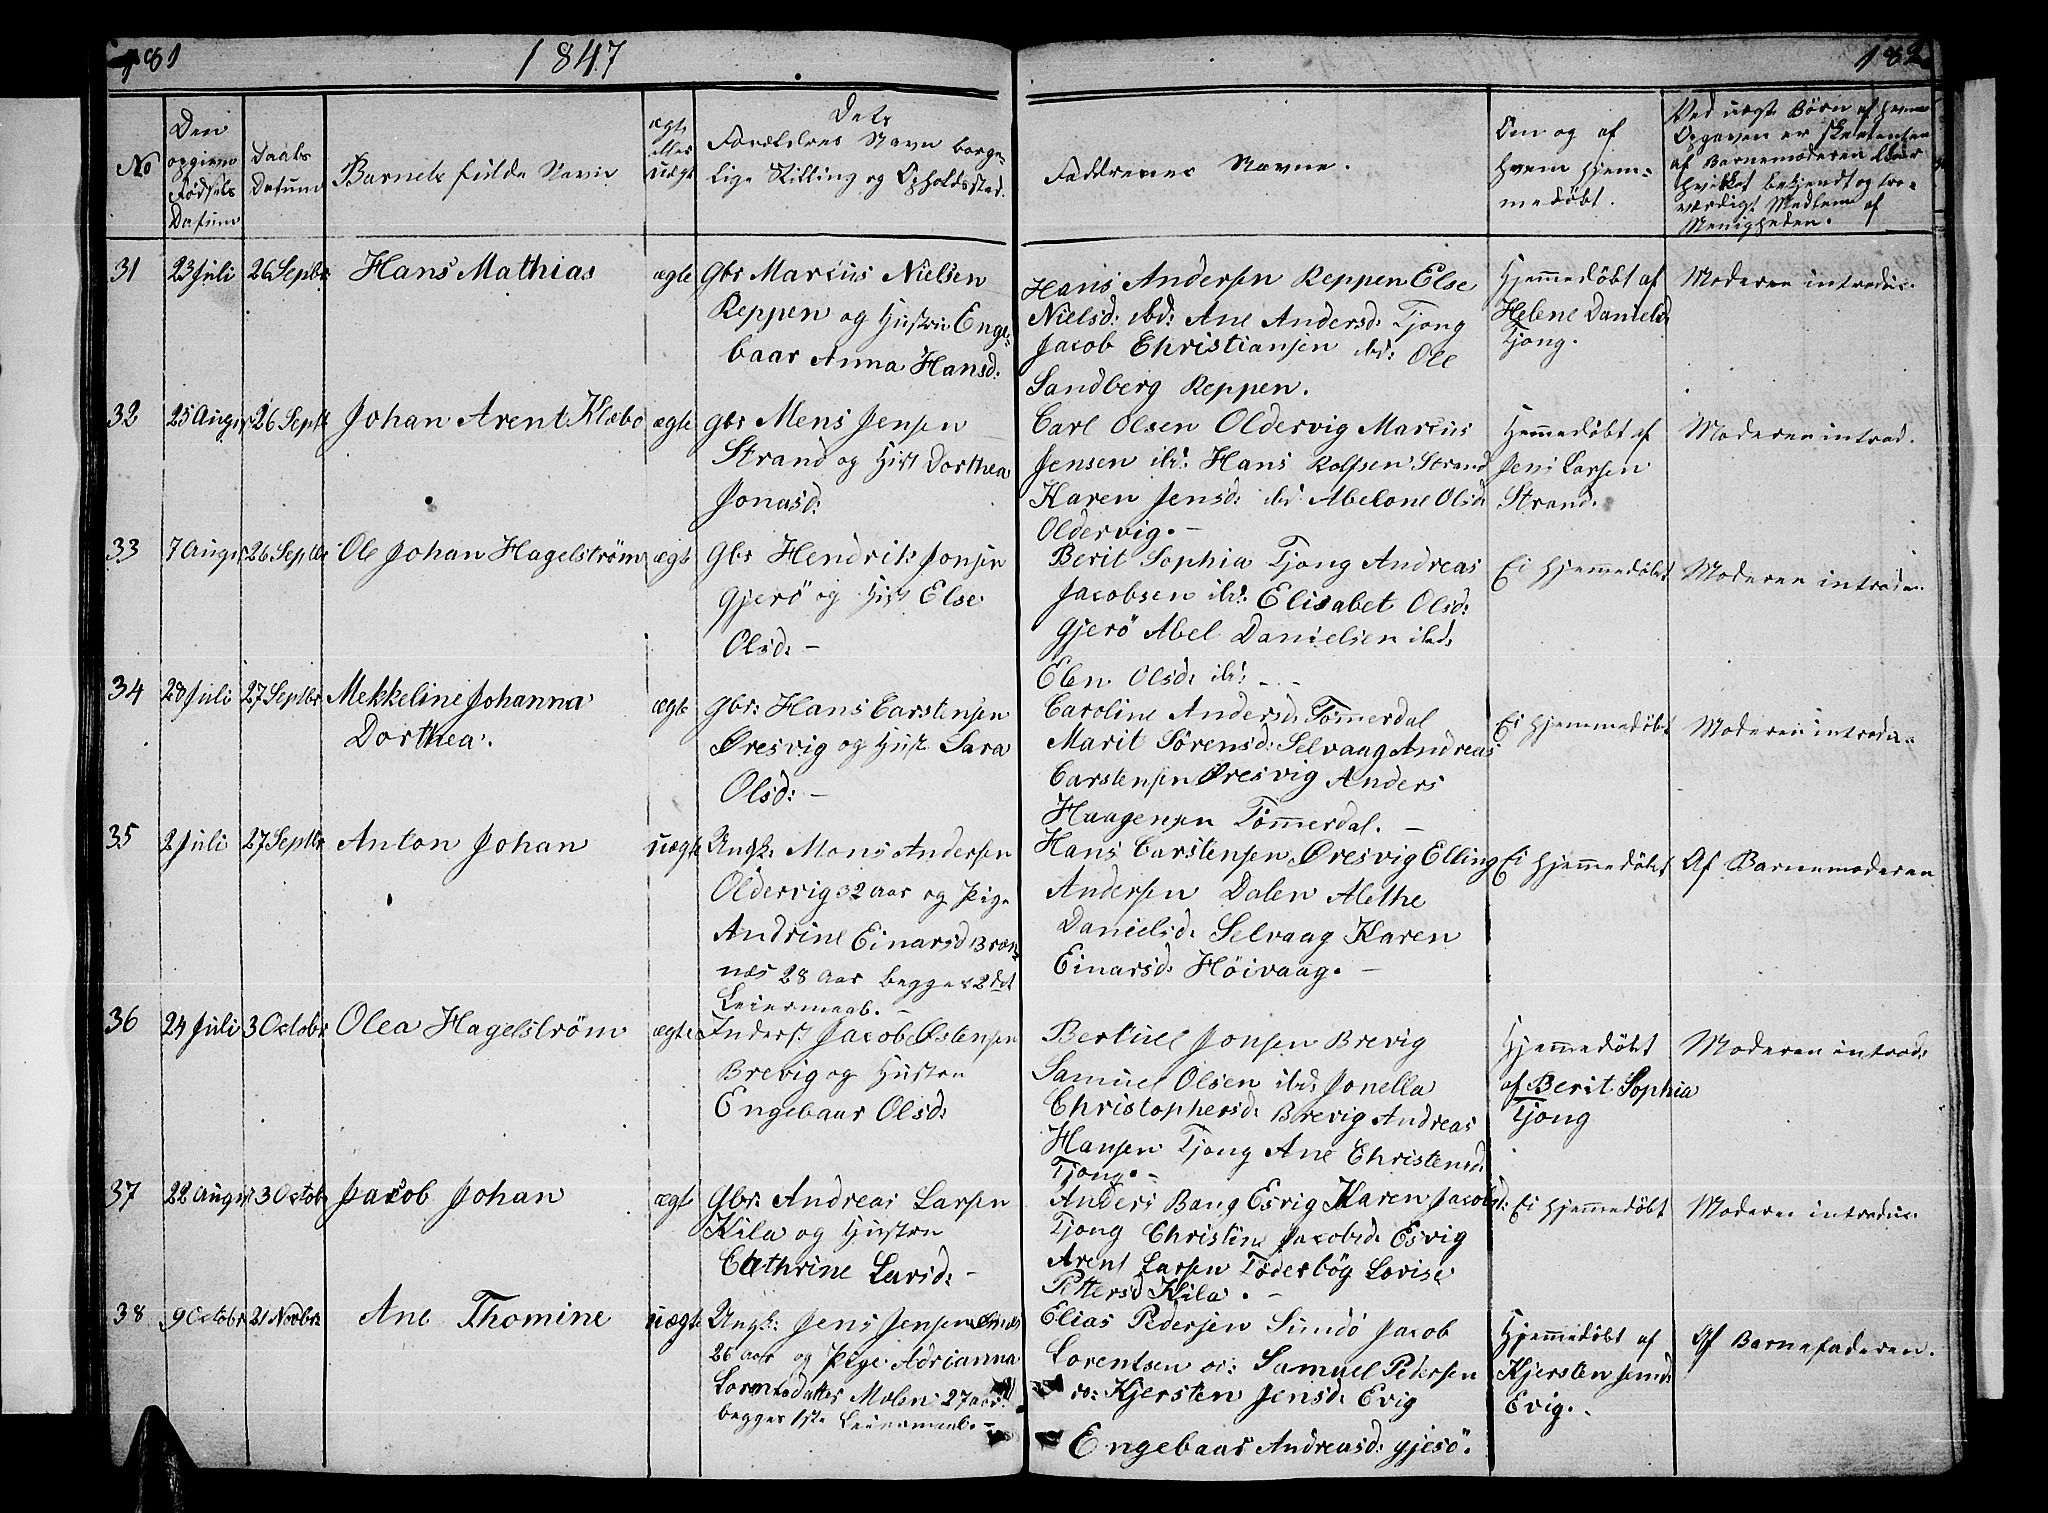 181
1847
182
No
Den
opgivne
Fødsels
Datum
Daabs
Datum
Barnets fulde Navn
ægte
eller
uægte
Dets
Forældres Navn borge-
lige Stilling og Opholdssted.
Faddrenes Navne.
Om og af
hvem hjem-
medøbt.
Ved uægte Børn af hvem
Opgaven er skeet enten
af Barnemoderen eller
hvilket bekjendt og tro-
værdigt Medlem af
Menigheden.
31 23 Juli 26 Septbr Hans Mathias ægte Gbr Marcus Nielsen
Reppen og Hustru Enge-
baar Anna Hansd:
Hans Andersen Reppen Else
Nielsd: ibd: Ane Andersd: Tjong
Jacob Christiansen ibd: Ole
Sandberg Reppen.
Hjemmedøbt af
Helene Danielsd
Tjong.
Moderen introduc.
32 25 August 26 Septb Johan Arent Klæbo ægte Gbr Mens Jensen
Strand og Hust Dorthea
Jonasd:
Carl Olsen Oldervig Marcus
Jensen ibd: Hans Rolfsen Strand
Karen Jensd: ibd Abelone Olsd:
Oldervig. -
Hjemmedøbt af
Jens Larsen
Strand.
Moderen introd.
33 7 August 26 Septbr Ole Johan Hagelstrøm ægte Gbr Hendrik Jonsen
Gjerö og Hust Else
Olsd: -
Berit Sophia Tjong Andreas
Jacobsen ibd: Elisabet Olsd:
Gjerö Abel Danielsen ibd:
Elen Olsd: ibd: -
Ei Hjemmedøbt
Moderen introdu.
34 28 Juli 27 Septbr Mekkeline Johanna
Dorthea.
ægte Gbr: Hans Carstensen
Øresvig og Hust Sara
Olsd: -
Caroline Andersd: Tømmerdal
Marit Sörensd: Selvaag Andreas
Carstensen Øresvig Anders
Haagensen Tømmerdal. -
Ei Hjemmedøbt
Moderen introdu.
35 2 Juli 27 Septbr Anton Johan uægte Ungk: Mons Andersen
Oldervig 32 Aar og Pige
Andrine Einarsd Bræn-
næs 28 Aar begges 2det
Leiermaal. -
Hans Carstensen Øresvig Elling
Andersen Dalen Alethe
Danielsd: Selvaag Karen
Einarsd: Höivaag. -
Ei Hjemmedøbt
Af Barnemoderen
36 24 Juli 3 Octobr Olea Hagelstrøm ægte Inderst Jacob Østensen
Brevig og Hustru
Engebaar Olsd:
Bertuel Jonsen Brevig
Samuel Olsen ibd: Jonella
Christophersd: Brevig Andreas
Hansen Tjong Ane Christensd:
Tjong. -
Hjemmedöbt
af Berit Sophia
Tjong
Moderen introd:
37 22 August 3 Octobr Jacob Johan ægte Gbr: Andreas Larsen
Kila og Hustru
Cathrine Larsd: -
Anders Bang Esvig Karen Jacobsd:
Tjong Christine Jacobsd: Esvig
Arent Larsen Töderbög Lovise
Pettersd Kila. -
Ei Hjemmedøbt
Moderen introduc.
38 9 Octobr 21 Novbr: Ane Thomine uægte Ungk: Jens Jensen
26 Aar og Pige Adrianna
Lorentsdatter Molen: 27 Aar
begges 1ste Leiermaal. -
Elias Pedersen Sundö Jacob
Lorentsen Samuel Pedersen
Kjersten Jensd: Evig
Engebaar Andreasd: Gjesö.
Hjemmedøbt af
Kjersten Jensd:
Evig.
Af Barnefaderen.